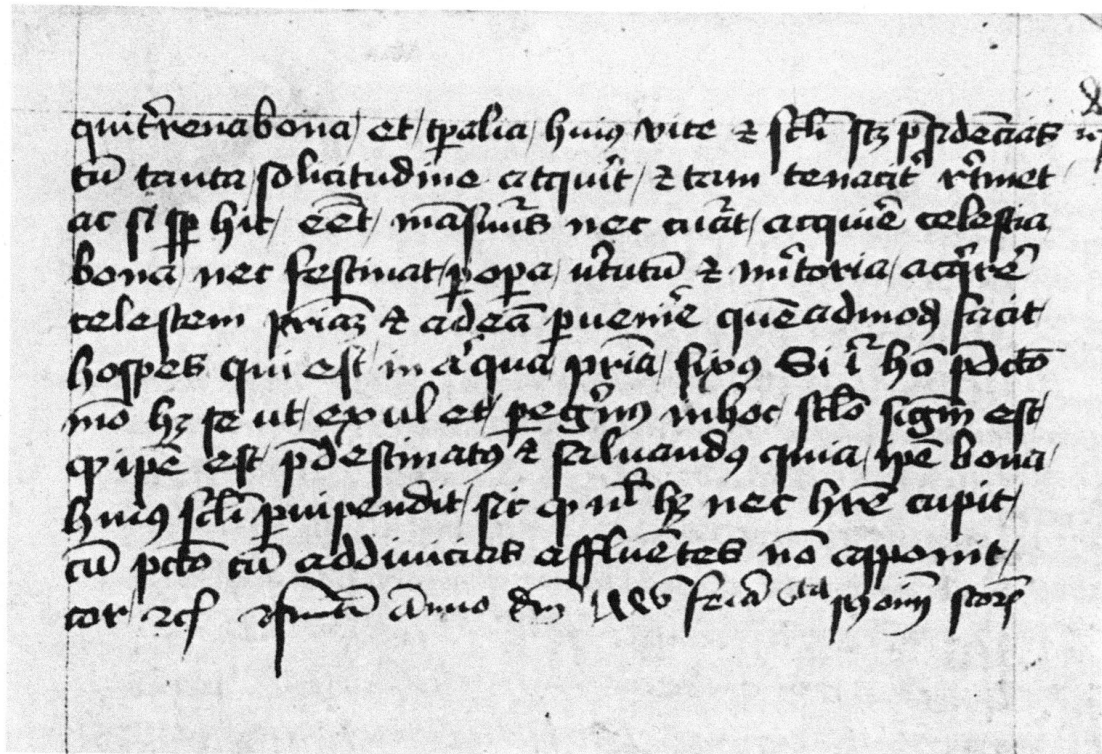 qui t̾rena bona et tp̱alia huiꝰ vite ⁊ scl̄i scꝫ p̄sidēcias
cū tanta solicitudine acquir̄t ⁊ tam tenacit̾ r̾tinet
ac si sp̱ hic eēt māsur̾s nec curāt acquir̾e celestia
bona nec festinat ꝑ oꝑa v̾tutū ⁊ mr̾itoria acq̾rer̄
celestem pr̄iaꝫ ⁊ ad eā ꝑuenir̾e quēadmodꝫ facit
hospes qui est in a̾qua pr̄ia fixꝰ Si g̾ hō p̄dc̄o
mō hꝫ se ut exul et ꝑegr̾inꝰ in hoc scl̄o signm̄ est
ꝙ ip̄e est p̄destinatꝰ ⁊ saluandꝰ quia ip̄e bona
huiꝰ scl̄i ꝑuipendit sic ꝙ nl̄ hꝫ nec hr̄e cupit
cū pctō cū ad diuicias affluētes nō apponit
cor ⁊c̄ Anno dn̄i feria oīm scōrꝫ